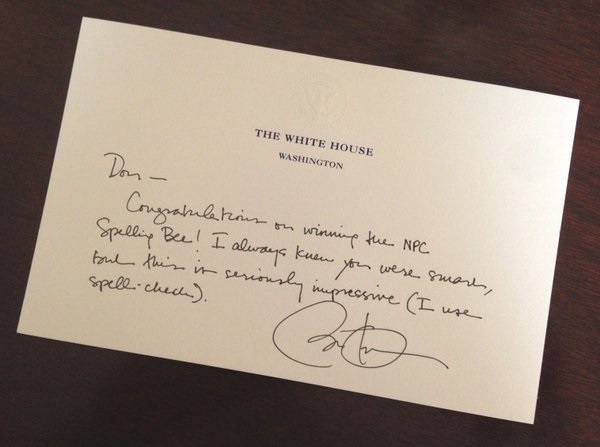 THE WHITE HOUSE
WASHINGTON
Don —
Congratulations on winning the NPC
Spelling Bee! I always knew you were smart,
but this is seriously impressive (I use
spell-check).